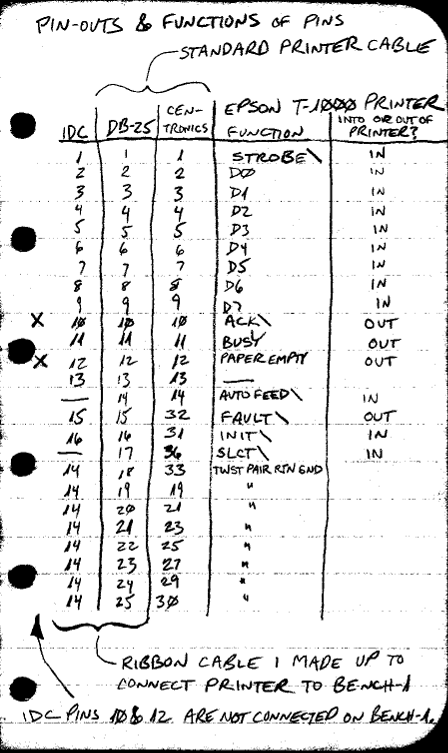 PIN-OUTS & FUNCTIONS OF PINS
STANDARD PRINTER CABLE
IDC DB-25 CEN-TRONICS EPSON T-1000 PRINTER FUNCTION INTO OR OUT OF PRINTER?
1 1 1 STROBE\ IN
2 2 2 D0 IN
3 3 3 D1 IN
4 4 4 D2 IN
5 5 5 D3 IN
6 6 6 D4 IN
7 7 7 D5 IN
8 8 8 D6 IN
9 9 9 D7 IN
X 10 10 10 ACK\ OUT
11 11 11 BUSY OUT
X 12 12 12 PAPER EMPTY OUT
13 13 13 —
— 14 14 AUTO FEED\ IN
15 15 32 FAULT\ OUT
16 16 31 INIT\ IN
— 17 36 SLCT\ IN
14 18 33 TWST PAIR RTN GND
14 19 19 "
14 20 21 "
14 21 23 "
14 22 25 "
14 23 27 "
14 24 29 "
14 25 30 "
RIBBON CABLE I MADE UP TO
CONNECT PRINTER TO BENCH-1
IDC PINS 10 & 12 ARE NOT CONNECTED ON BENCH-1.